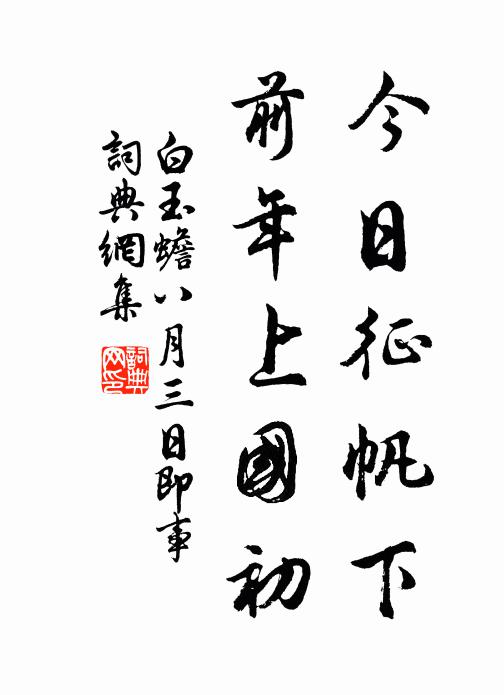 今日征帆下
前年上國初
白玉蟾八月三日即事
詞典網集
詞典网印